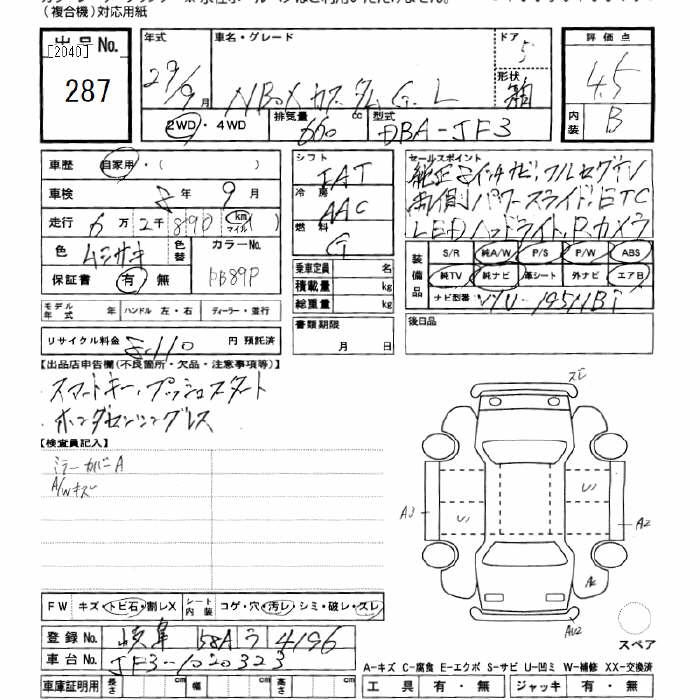 （複合機）対応用紙
出品No. [2040] 287
年式 29/9月
車名・グレード NBOXカスタム G.L
ドア 5
形状 箱
評価点 4.5
内装 B
2WD・4WD 排気量 660 cc 型式 DBA-JF3
車歴 自家用・（ ）
車検 年 9月
走行 6万2千890 km マイル
色 ムラサキ 色替 カラーNo. PB89P
保証書 有・無
モデル年式 年 ハンドル 左・右 ディーラー・並行
リサイクル料金 円 預託済
シフト IAT
冷房 AAC
燃料 G
乗車定員 名
積載量 kg
総重量 kg
書類期限 月 日
セールスポイント
純正8インチナビ,フルセグTV
両側パワースライド,ETC
LEDヘッドライト,P,カメラ
装備品 S/R 純A/W P/S P/W ABS
純TV 純ナビ 革シート 外ナビ エアB
ナビ型番
後日品
【出品店申告欄(不良箇所・欠品・注意事項等)】
・スマートキー,プッシュスタート
・ホンダセンシングレス
【検査員記入】
ミラーカバーA
A/Wキズ
スビ
U U
A3 A2
AU2
FW キズ・トビ石・割レX シート内装 コゲ・穴・汚レ・シミ・破レ・スレ
登録No. 岐阜 58A ラ 4196
車台No. JF3-1020323
車庫証明用 長さ cm 幅 cm 高さ cm
スペア
A-キズ C-腐食 E-エクボ S-サビ U-凹ミ W-補修 XX-交換済
工具 有・無 ジャッキ 有・無